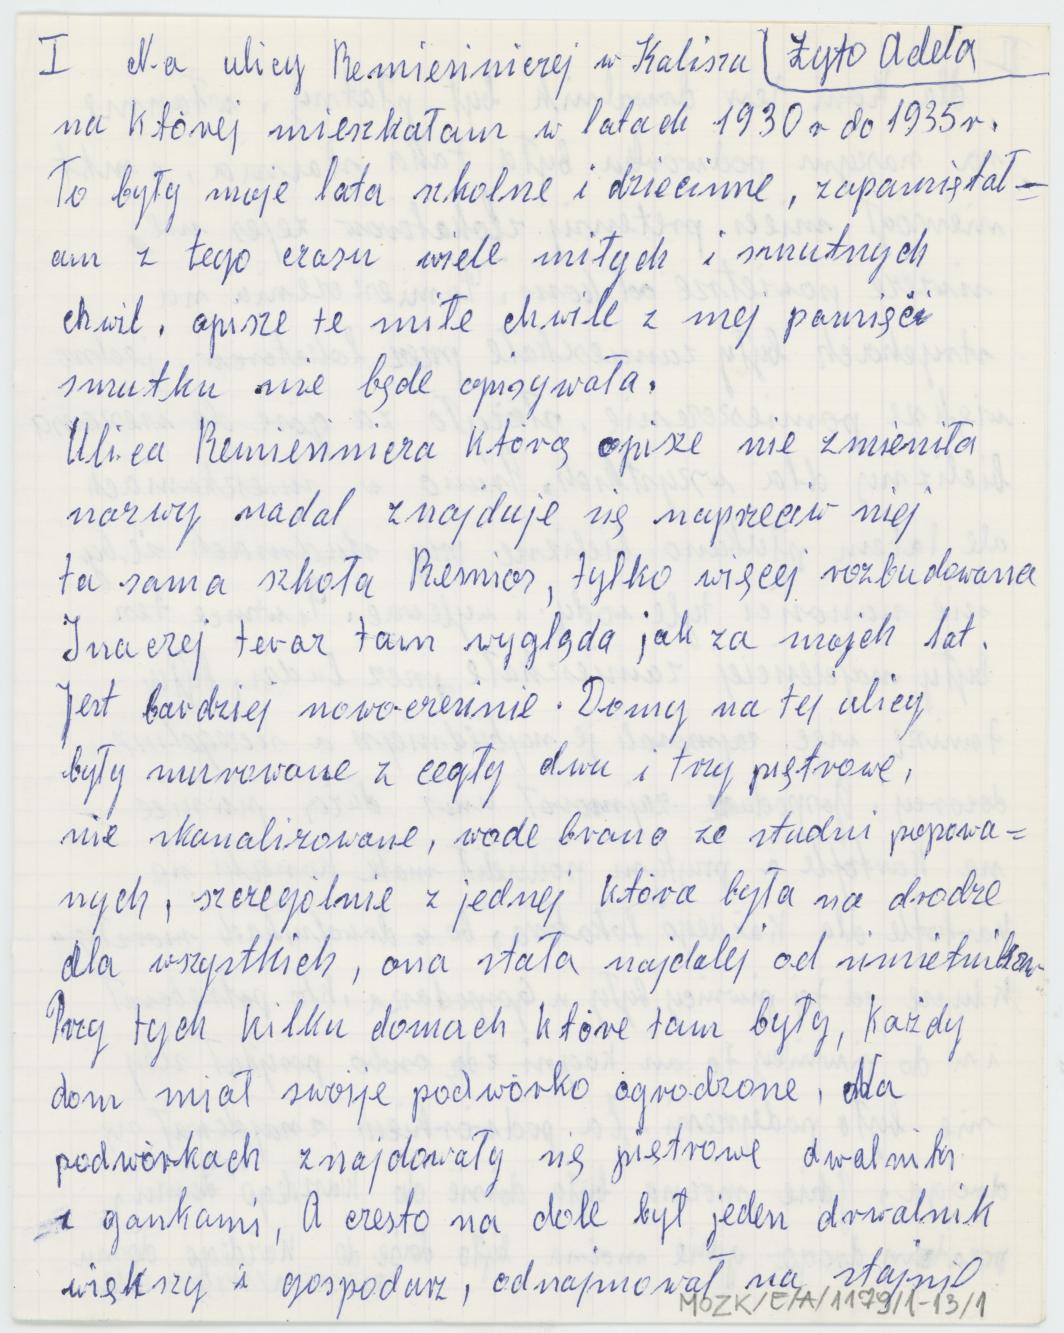 I Na ulicy Remieśniczej w Kalisza Żyto Adela
na której mieszkałam w latach 1930 r do 1935 r.
To były moje lata szkolne i dziecinne, zapamiętał=
am z tego czasu wiele miłych i smutnych
chwil. opisze te miłe chwile z mej pamięci
smutku nie będe opisywała.
Ulica Remieśnicza którą opisze nie zmieniła
nazwy nadal znajduje się naprzeciw niej
ta sama szkoła Remios, tylko więcej rozbudowana
Inaczej teraz tam wygląda jak za mojch lat.
Jest bardziej nowocześnie. Domy na tej ulicy
były murowane z cegły dwu i trzy piętrowe,
nie skanalizowane, wode brano ze studni popowa=
nych, szczególnie z jednej która była na drodze
dla wszystkich, ona stała najdalej od śmietników
Przy tych kilku domach które tam były, każdy
dom miał swoje podwórko ogrodzone, Na
podwórkach znajdowały się piętrowe drwalniki
z gankami, A czesto na dole był jeden drwalnik
większy i gospodarz, odnajmował na stajnie
MOZK/E/A/1179/1-13/1